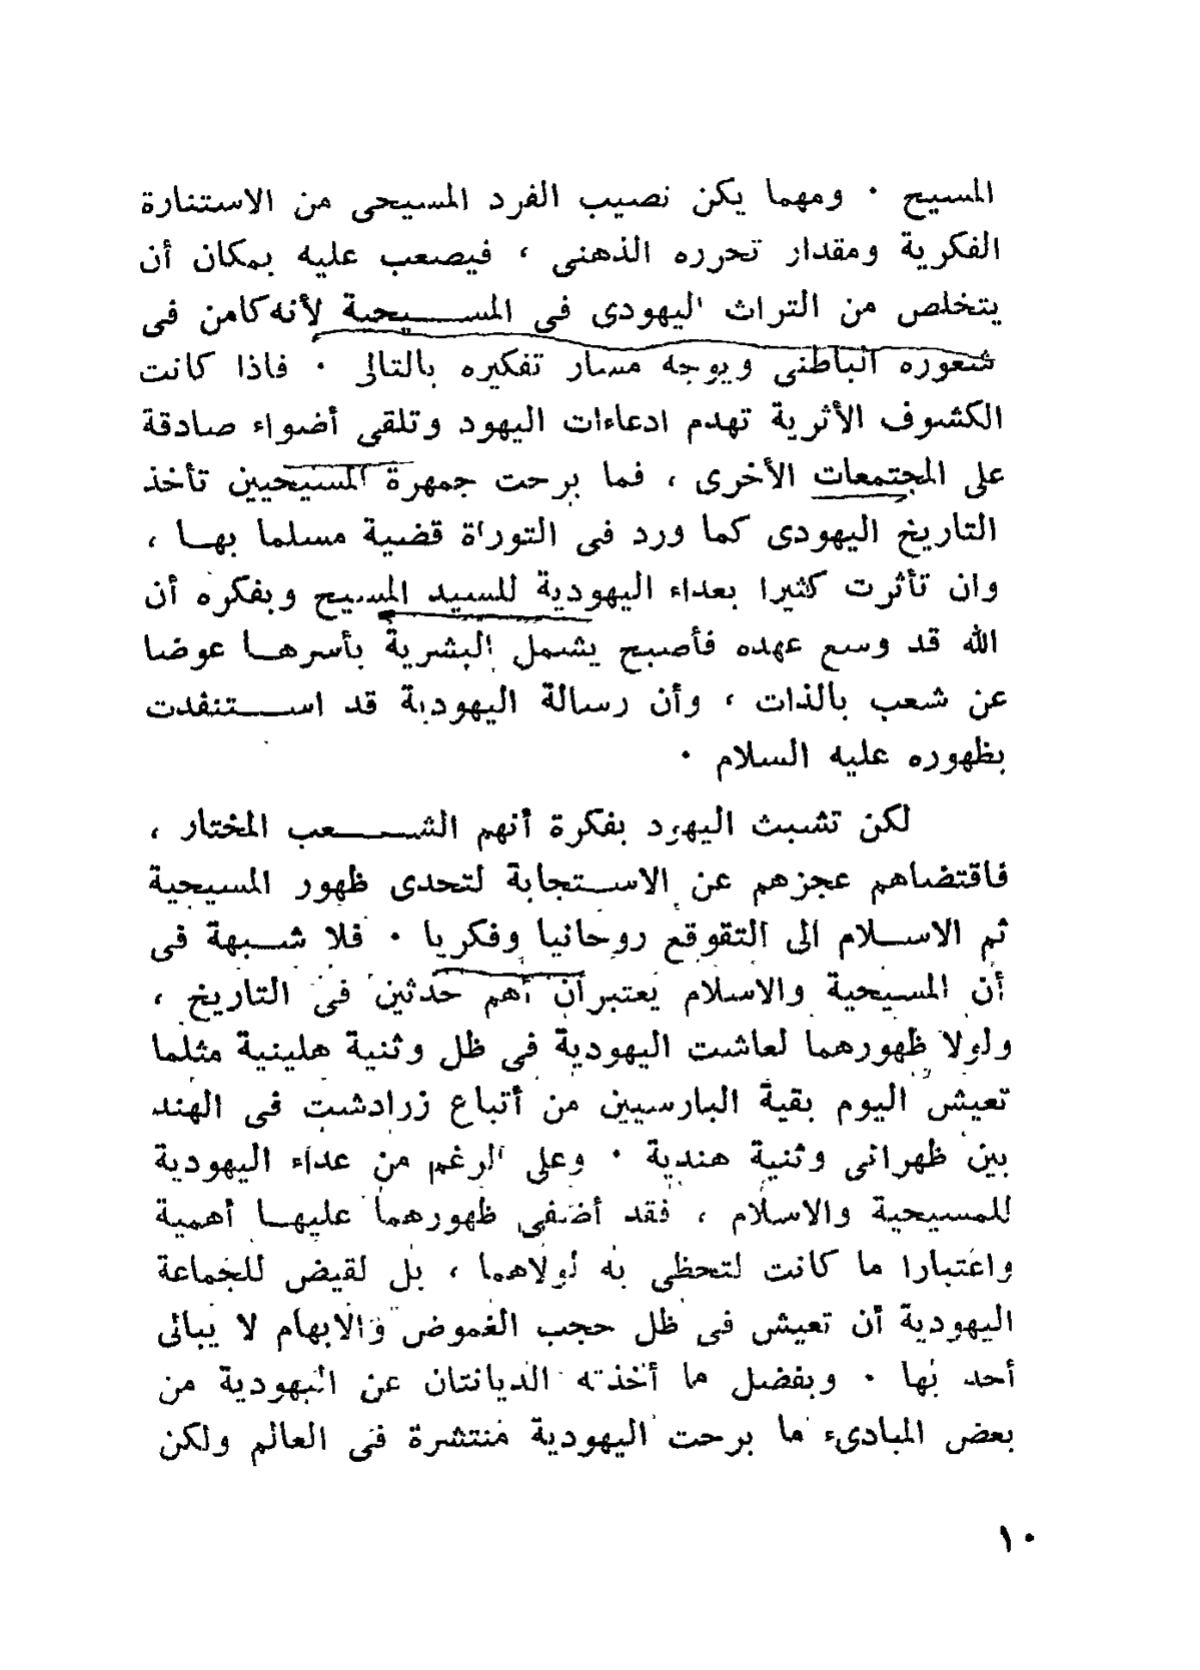 المسيح ٠ ومهما يكن نصيب الفرد المسيحى من الاستنارة
الفكرية ومقدار تحرره الذهنى ، فيصعب عليه بمكان أن
يتخلص من التراث اليهودى فى المسيحية لأنه كامن فى
شعوره الباطنى ويوجه مسار تفكيره بالتالى ٠ فاذا كانت
الكشوف الأثرية تهدم ادعاءات اليهود وتلقى أضواء صادقة
على المجتمعات الأخرى ، فما برحت جمهرة المسيحيين تأخذ
التاريخ اليهودى كما ورد فى التوراة قضية مسلما بها ،
وان تأثرت كثيرا بعداء اليهودية للسيد المسيح وبفكره أن
الله قد وسع عهده فأصبح يشمل البشرية بأسرها عوضا
عن شعب بالذات ، وأن رسالة اليهودية قد استنفدت
بظهوره عليه السلام ٠
لكن تشبث اليهود بفكرة أنهم الشعب المختار ،
فاقتضاهم عجزهم عن الاستجابة لتحدى ظهور المسيحية
ثم الاسلام الى التقوقع روحانيا وفكريا ٠ فلا شبهة فى
أن المسيحية والاسلام يعتبران أهم حدثين فى التاريخ ،
ولولا ظهورهما لعاشت اليهودية فى ظل وثنية هلينية مثلما
تعيش اليوم بقية البارسيين من أتباع زرادشت فى الهند
بين ظهرانى وثنية هندية ٠ وعلى الرغم من عداء اليهودية
للمسيحية والاسلام ، فقد أضفى ظهورهما عليها أهمية
واعتبارا ما كانت لتحظى به لولاهما ، بل لقيض للجماعة
اليهودية أن تعيش فى ظل حجب الغموض والابهام لا يبالى
أحد بها ٠ وبفضل ما أخذته الديانتان عن اليهودية من
بعض المبادىء ما برحت اليهودية منتشرة فى العالم ولكن
١٠